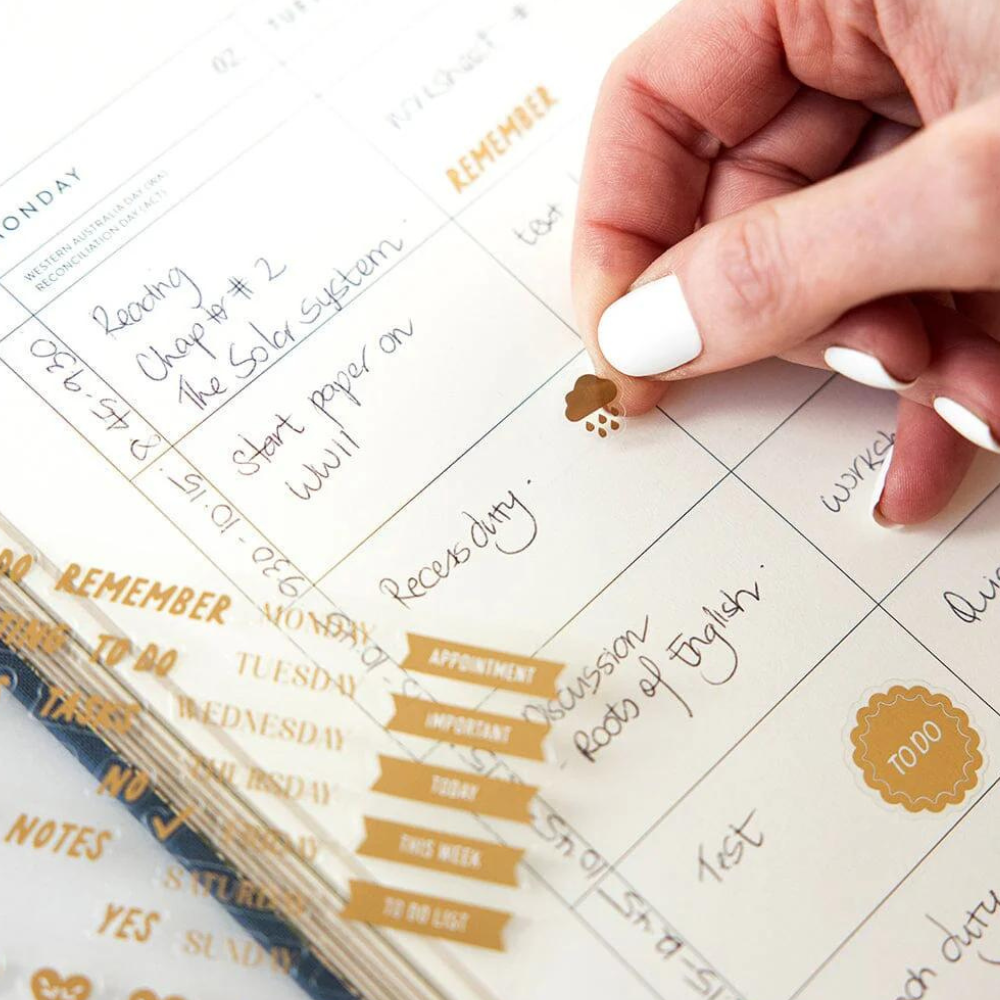 02
REMEMBER
MONDAY
WESTERN AUSTRALIA DAY (WA)
RECONCILIATION DAY (ACT)
Reading
Chapter # 2
The Solar System
8 45-9 30
Start paper on
WWII
9 30 - 10:15
Recess duty.
text
Discussion
- Roots of English.
Test
TO DO
REMEMBER
TO DO
TASKS
NO
NOTES
YES
MONDAY
TUESDAY
WEDNESDAY
THURSDAY
SATURDAY
SUNDAY
APPOINTMENT
IMPORTANT
TODAY
THIS WEEK
TO DO LIST